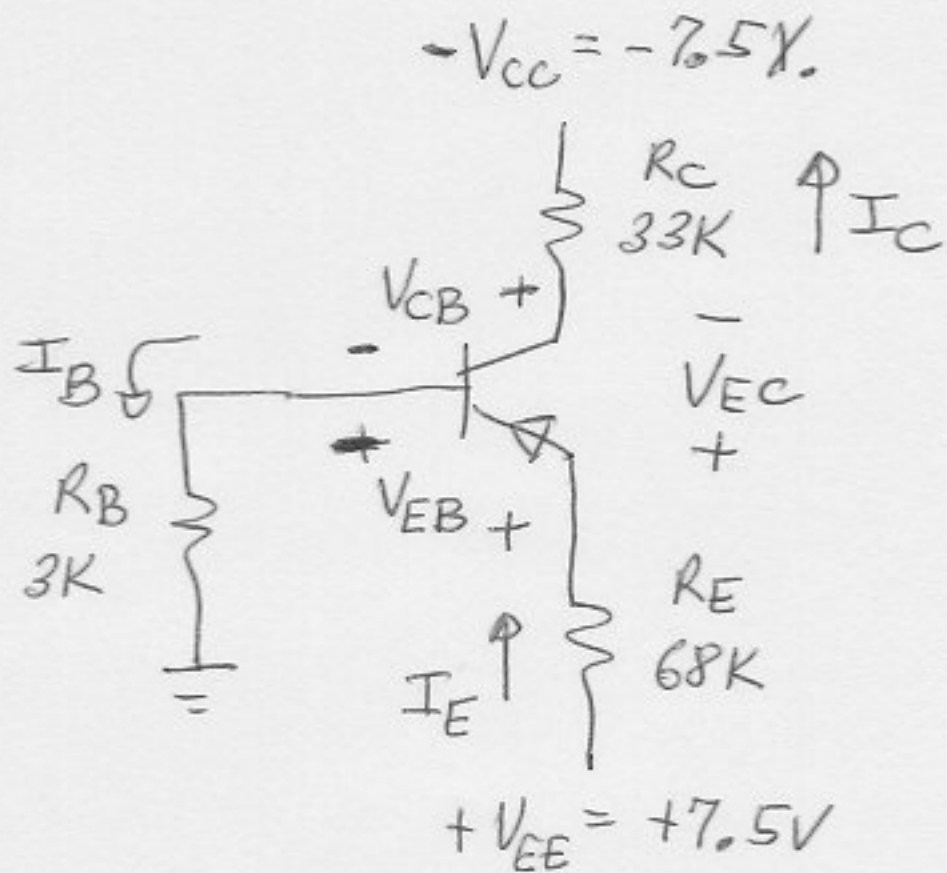 -V_CC = -7.5V.
R_C
33K
I_C
V_CB +
-
-
I_B
V_EC
+
+
R_B
V_EB +
3K
R_E
68K
I_E
+V_EE = +7.5V